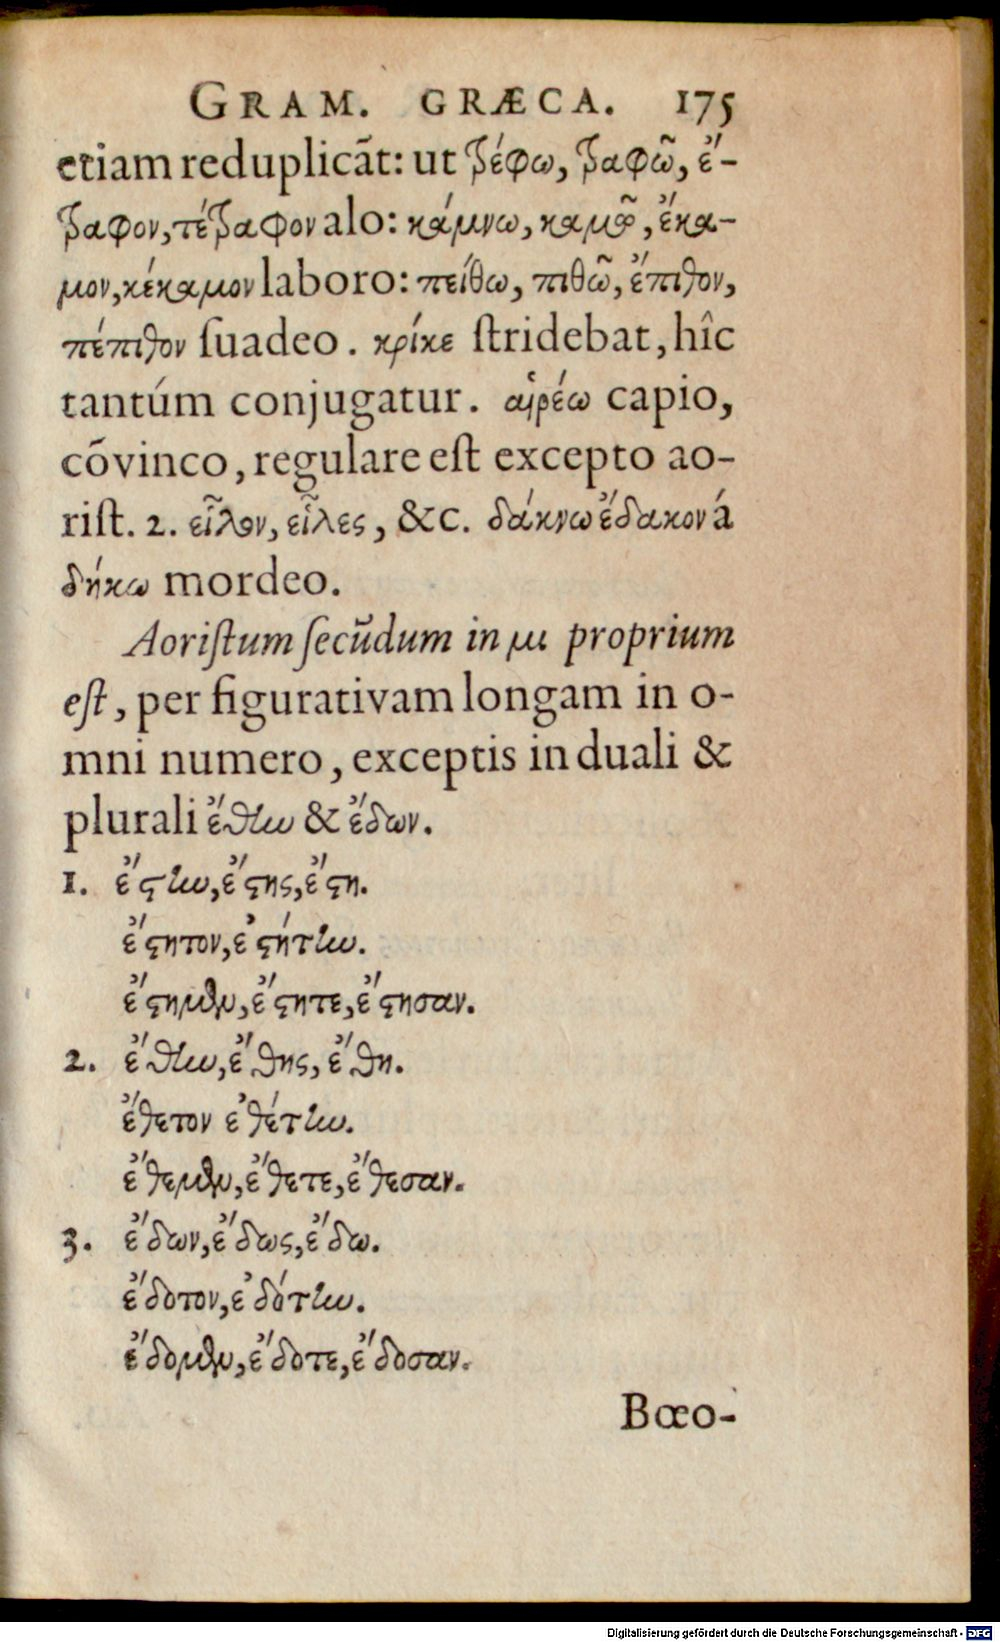 GRAM. GRÆCA. 175
etiam reduplicãt: ut τρέφω, τραφῶ, ἔ-
τραφον, τέτραφον alo: κάμνω, καμῶ, ἔκα-
μον, κέκαμον laboro: πείθω, πιθῶ, ἔπιθον,
πέπιθον ſuadeo. κρίκε ſtridebat, hîc
tantúm conjugatur. αἱρέω capio,
cõvinco, regulare eſt excepto ao-
riſt. 2. εἷλον, εἷλες, &c. δάκνω ἔδακον á
δήκω mordeo.
Aoriſtum ſecũdum in μι proprium
eſt, per figurativam longam in o-
mni numero, exceptis in duali &
plurali ἔθην & ἔδων.
1. ἔϛην, ἔϛης, ἔϛη.
ἔϛητον, ἐϛήτην.
ἔϛημεν, ἔϛητε, ἔϛησαν.
2. ἔθην, ἔθης, ἔθη.
ἔθετον ἐθέτην.
ἔθεμεν, ἔθετε, ἔθεσαν.
3. ἔδων, ἔδως, ἔδω.
ἔδοτον, ἐδότην.
ἔδομεν, ἔδοτε, ἔδοσαν.
Bœo-
Digitalisierung gefördert durch die Deutsche Forschungsgemeinschaft - DFG